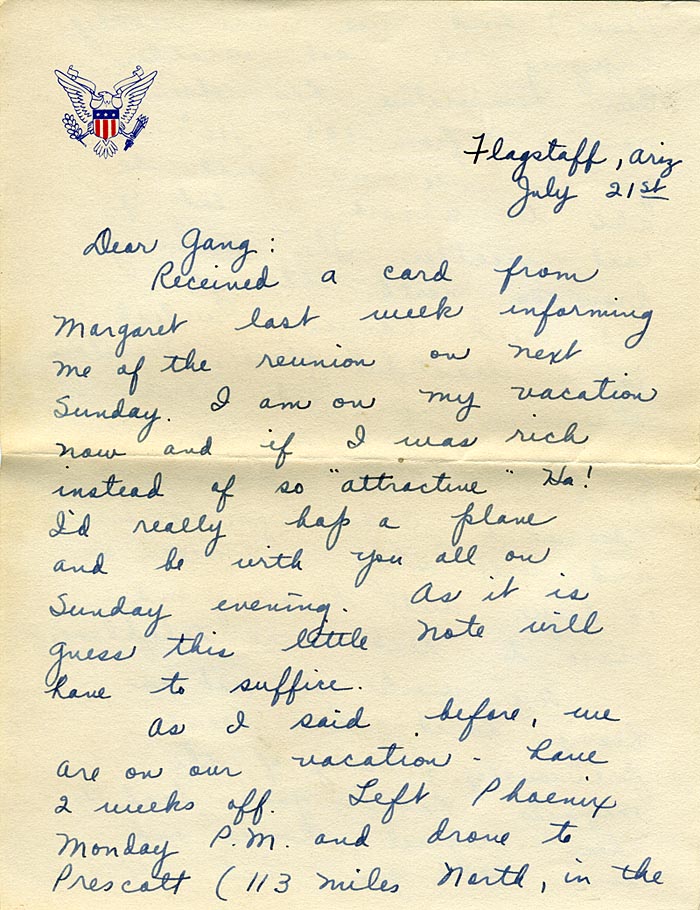 Flagstaff, Ariz
July 21st
Dear Gang:
Received a card from
Margaret last week informing
me of the reunion on next
Sunday. I am on my vacation
now and if I was rich
instead of so "attractive" Ha!
I'd really hop a plane
and be with you all on
Sunday evening. As it is
guess this little note will
have to suffice.
As I said before, we
are on our vacation - have
2 weeks off. Left Phoenix
Monday P.M. and drove to
Prescott (113 miles North, in the